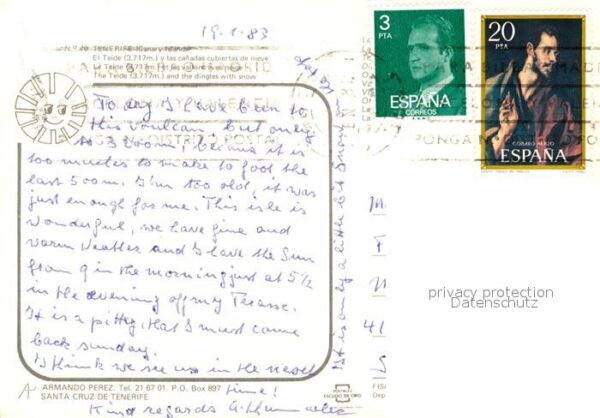 19.1.83
Nº 20 TENERIFE (Canary Islands)
El Teide (3.717m.) y las cañadas cubiertas de nieve
Le Teide (3.717m.) et les vallons enneigés
The Teide (3.717m.) and the dingles with snow
To day I have been to
this voulcan but only
to 3000m because it is
too much to make to foot the
last 500m. I'm too old, it was
just enough for me. This isle is
wonderful, we have fine and
warm weather and I have the Sun
from 9 in the morning just at 5½
in the evening off my Terasse.
It is a pitty, that I must come
back sunday.
I think we see us in the next
time!
Kind regards
It is only a little bit Snow on the top
3
PTA
ESPAÑA
CORREOS
20
PTA
CORREO AEREO
ESPAÑA
PONGA
DISTRITO POSTAL
privacy protection
Datenschutz
ARMANDO PEREZ. Tel. 21 67 01. P.O. Box 897
SANTA CRUZ DE TENERIFE
POSTALES
ESCUDO DE ORO
FISA
Dep